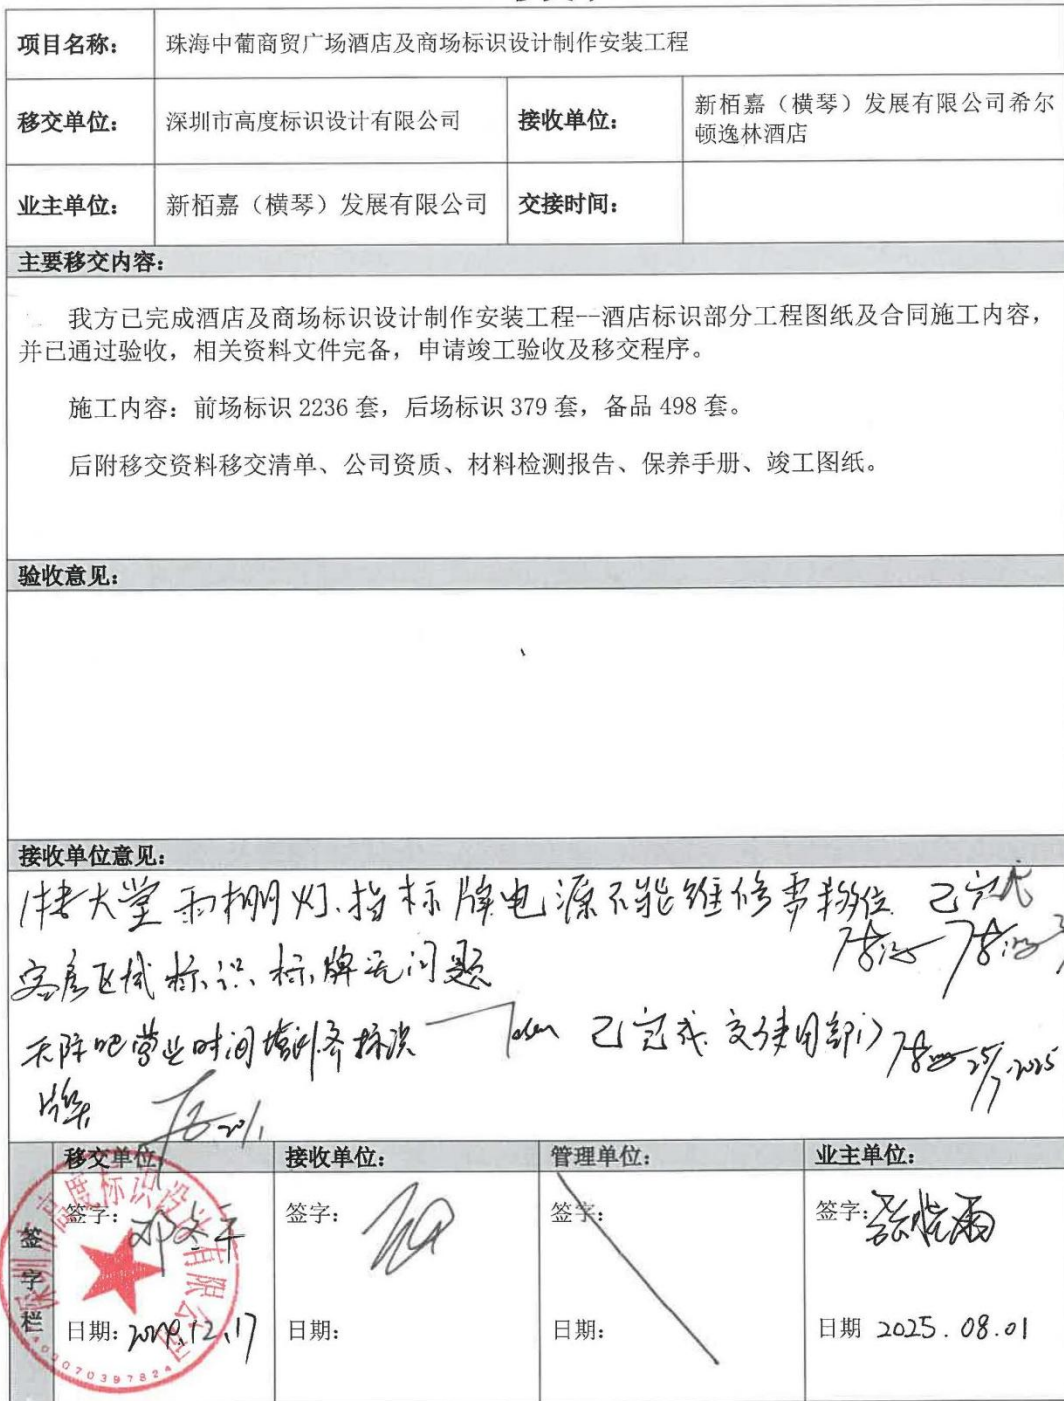 项目名称：
珠海中葡商贸广场酒店及商场标识设计制作安装工程
移交单位：
深圳市高度标识设计有限公司
接收单位：
新栢嘉（横琴）发展有限公司希尔
顿逸林酒店
业主单位：
新栢嘉（横琴）发展有限公司
交接时间：
主要移交内容：
我方已完成酒店及商场标识设计制作安装工程--酒店标识部分工程图纸及合同施工内容，
并已通过验收，相关资料文件完备，申请竣工验收及移交程序。
施工内容：前场标识 2236 套，后场标识 379 套，备品 498 套。
后附移交资料移交清单、公司资质、材料检测报告、保养手册、竣工图纸。
验收意见：
接收单位意见：
大堂雨棚灯、指标牌电源不能维修需移位 已完成
客房区域标识、标牌无问题
营业时间 已完成 交使用部门
25/7.2025
移交单位
接收单位：
管理单位：
业主单位：
签字栏
签字：
签字：
签字：
签字：
日期：
12.17
日期：
日期：
日期 2025.08.01
深圳市高度标识设计有限公司